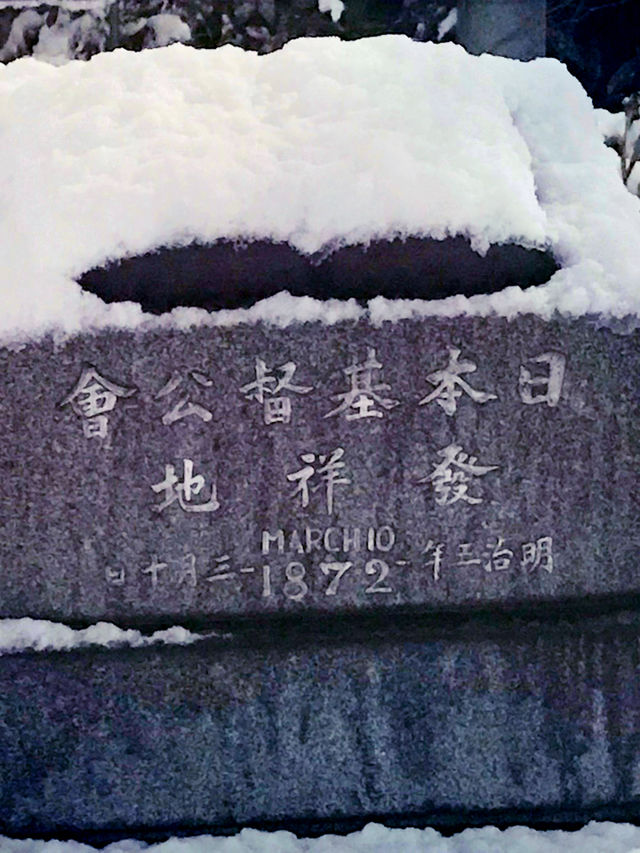 日本基督公會
發祥地
MARCH 10
明治五年-1872-三月十日